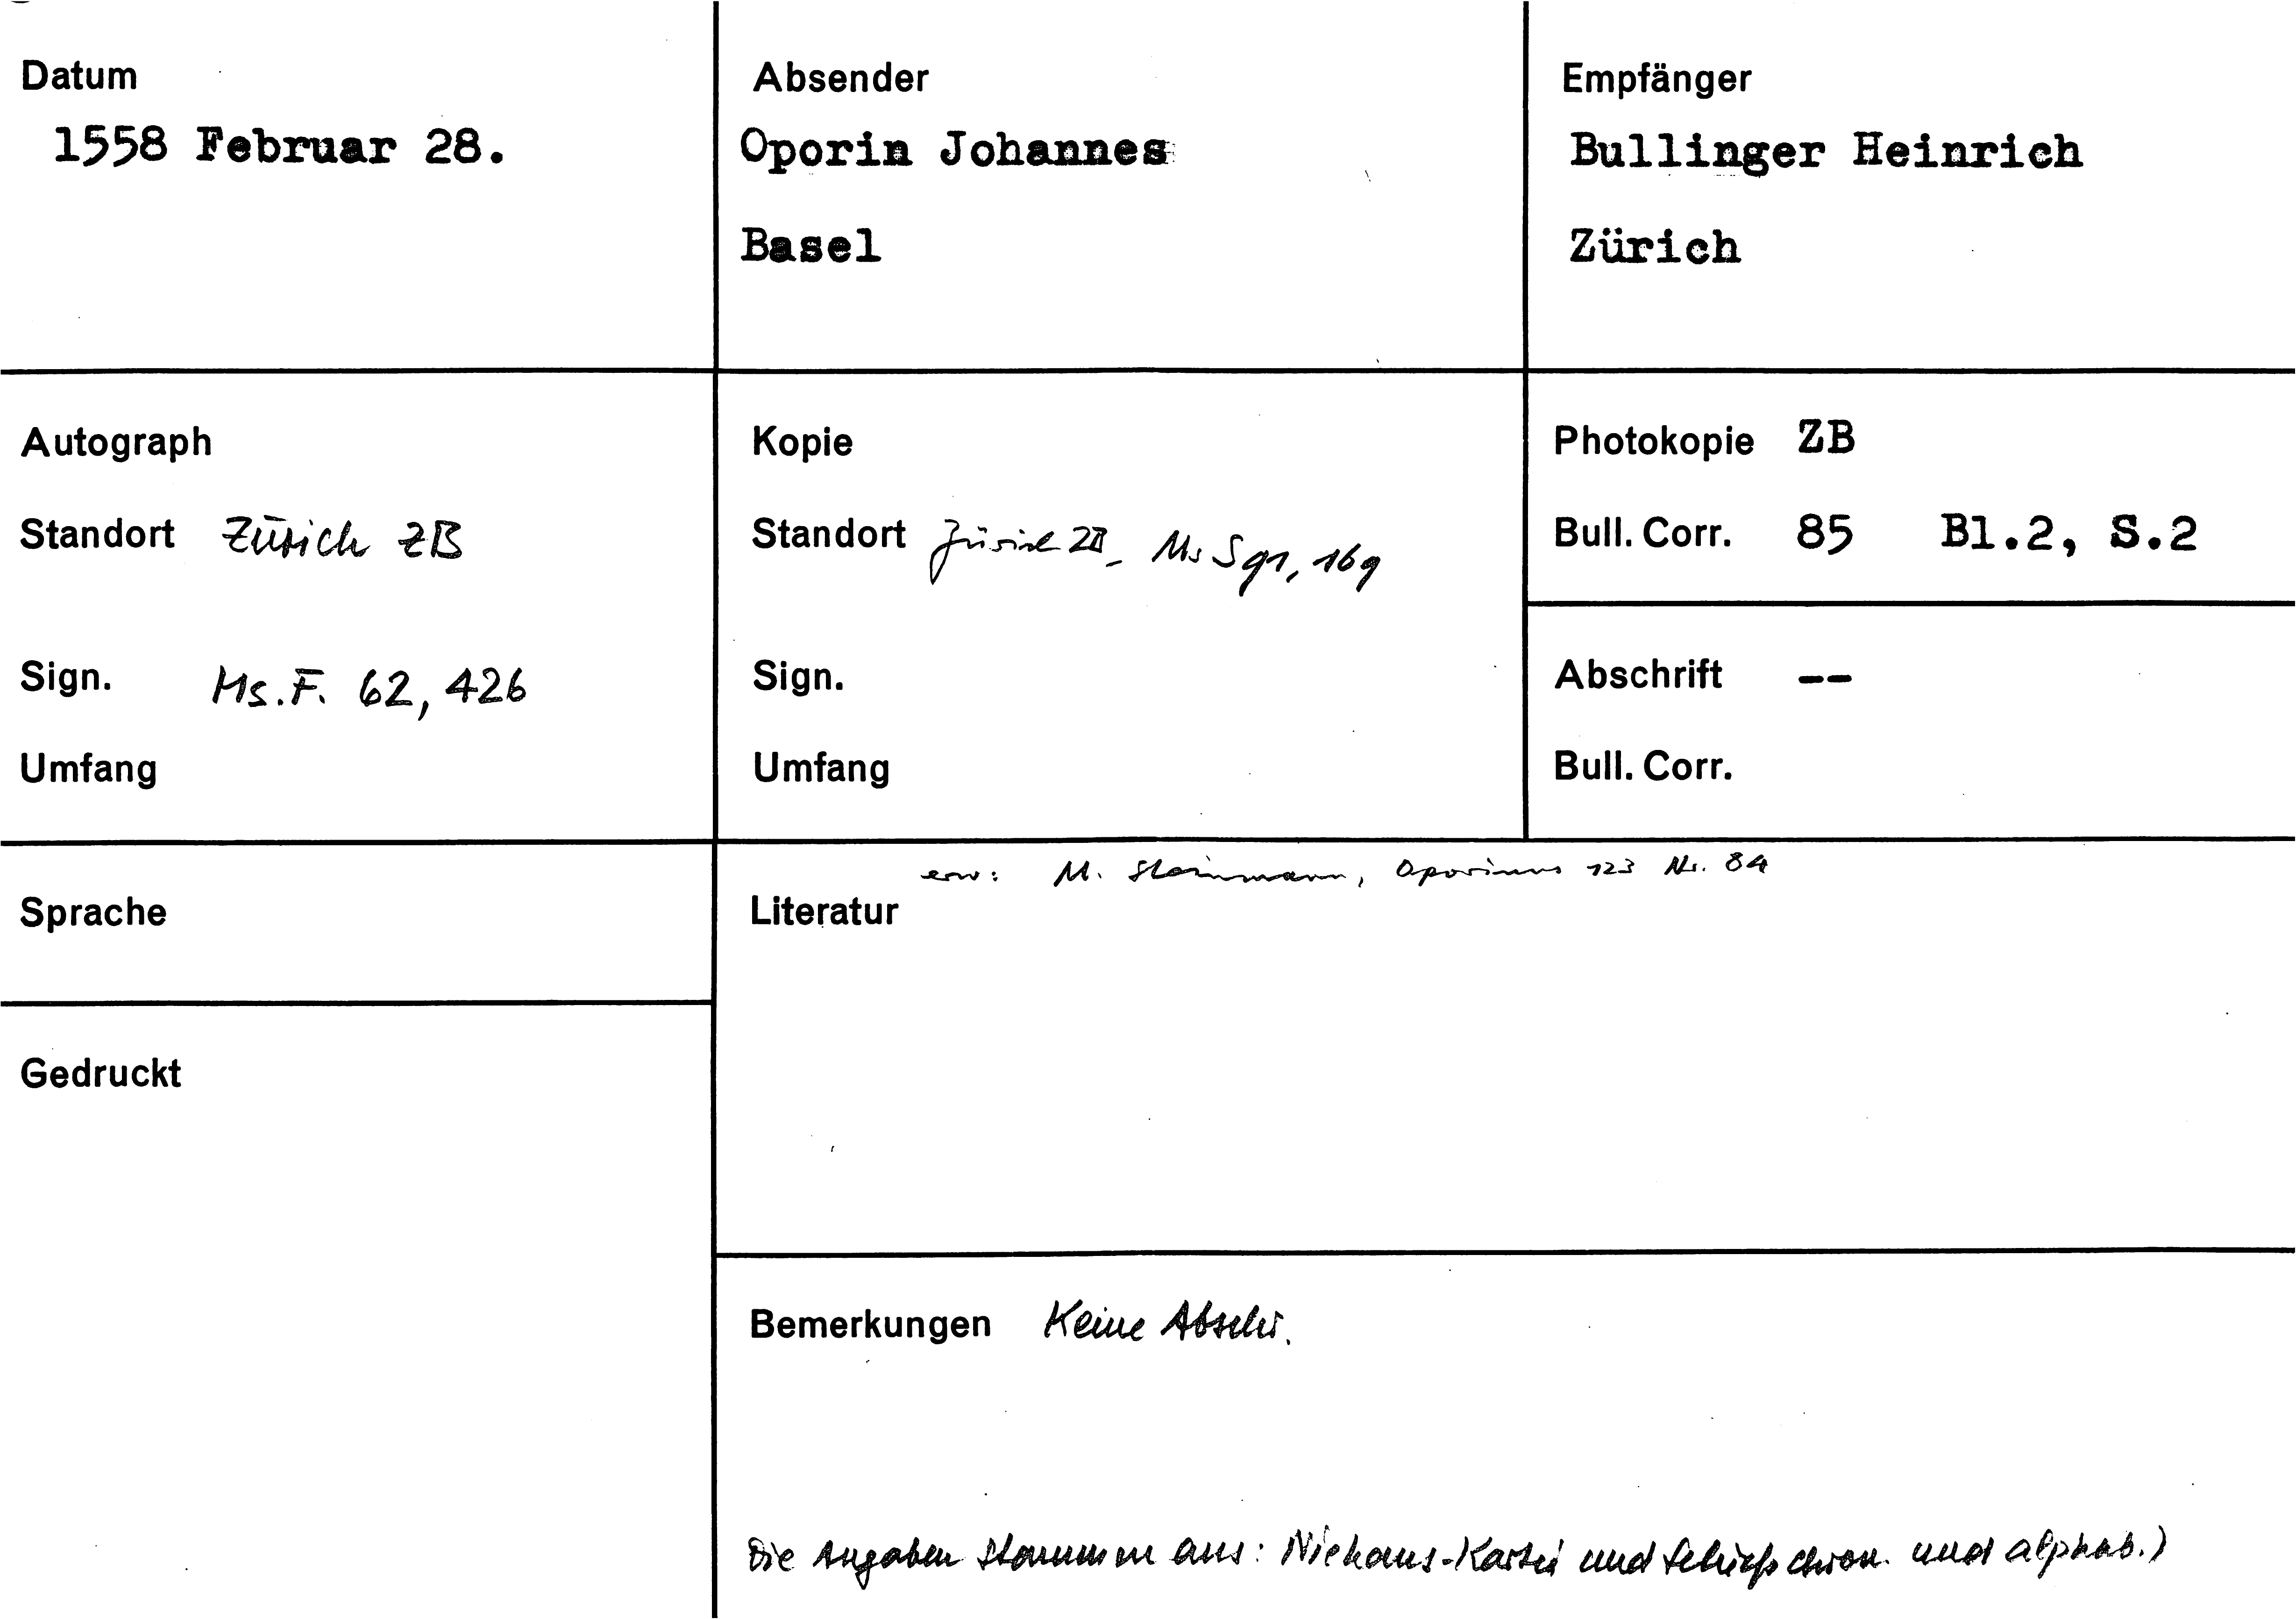 Datum
1558 Februar 28.
Absender
Oporin Johannes
Basel
Empfänger
Bullinger Heinrich
Zürich
Autograph
Standort Zürich ZB
Sign. Ms. F. 62, 426
Umfang
Kopie
Standort Zürich ZB Ms S 91, 169
Sign.
Umfang
Photokopie ZB
Bull. Corr. 85 Bl.2, S.2
Abschrift --
Bull. Corr.
Sprache
Gedruckt
erw: M. Steinmann, Oporinus 123 Nr. 84
Literatur
Bemerkungen Keine Abschr.
Die Angaben stammen aus: Niehaus-Kartei und Schieß chron. und alphab.)